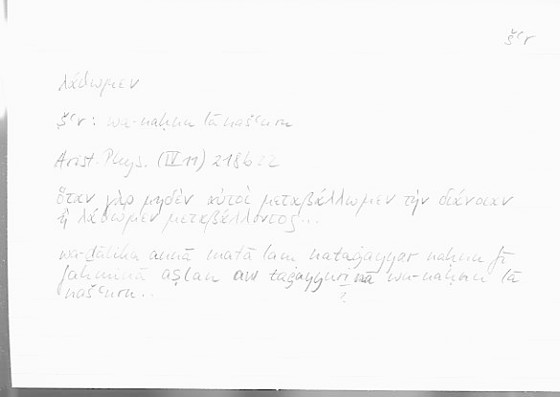 šʿr
λάθωμεν
šʿr : wa-naḥnu lā našʿuru
Arist. Phys. (IV 11) 218b22
ὅταν γὰρ μηδὲν αὐτοὶ μεταβάλλωμεν τὴν διάνοιαν
ἢ λάθωμεν μεταβάλλοντες...
wa-ḏālika annā matā lam nataġayyar naḥnu fī
ḏahninā aṣlan aw taġayyurinā wa-naḥnu lā
našʿuru..
?